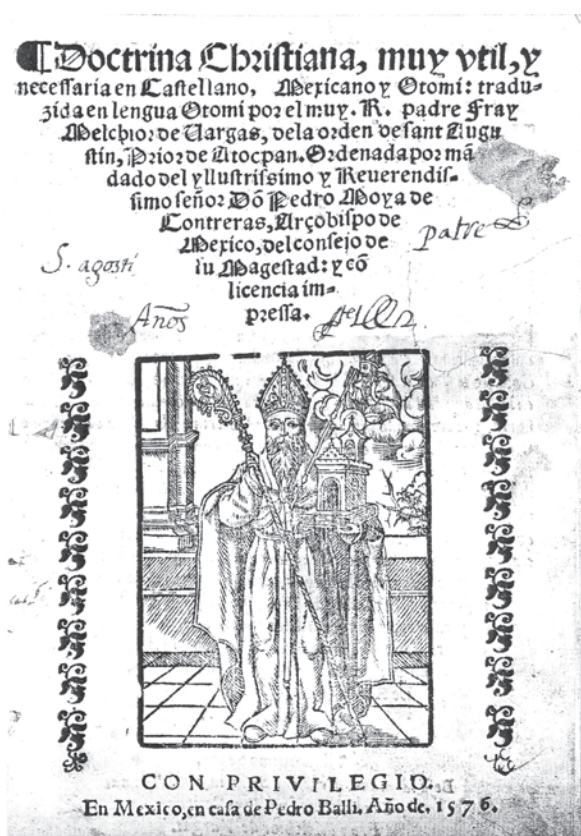 ¶Doctrina Chriſtiana, muy vtil, y
neceſſaria en Caſtellano, Mexicano y Otomi: tradu-
zida en lengua Otomi por el muy. R. padre Fray
Melchior de Vargas, dela orden de ſant Augu
ſtin, Prior de Atocpan. Ordenada por mã
dado del yllustriſsimo y Reuerendiſ-
ſimo ſeñor Dõ Pedro Moya de
Contreras, Arçobiſpo de
Mexico, del conſejo de
ſu Mageſtad: y cõ
licencia im-
preſſa.
patre
S. agosti
Años
CON PRIVILEGIO.
En Mexico, en caſa de Pedro Balli. Año de. 1576.